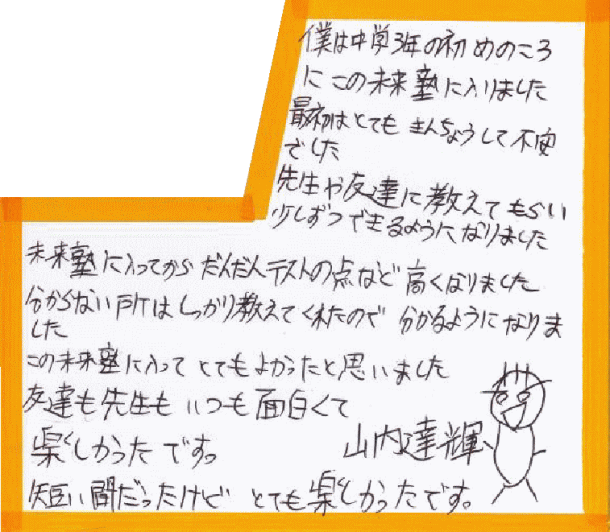 僕は中学3年の初めのころ
にこの未来塾に入りました
最初はとてもきんちょうして不安
でした
先生や友達に教えてもらい
少しずつできるようになりました
未来塾に入ってからだんだんテストの点など高くなりました
分からない所はしっかり教えてくれたので分かるようになりま
した
この未来塾に入ってとてもよかったと思いました
友達も先生もいつも面白くて
楽しかったです。
山内達輝
短い間だったけどとても楽しかったです。